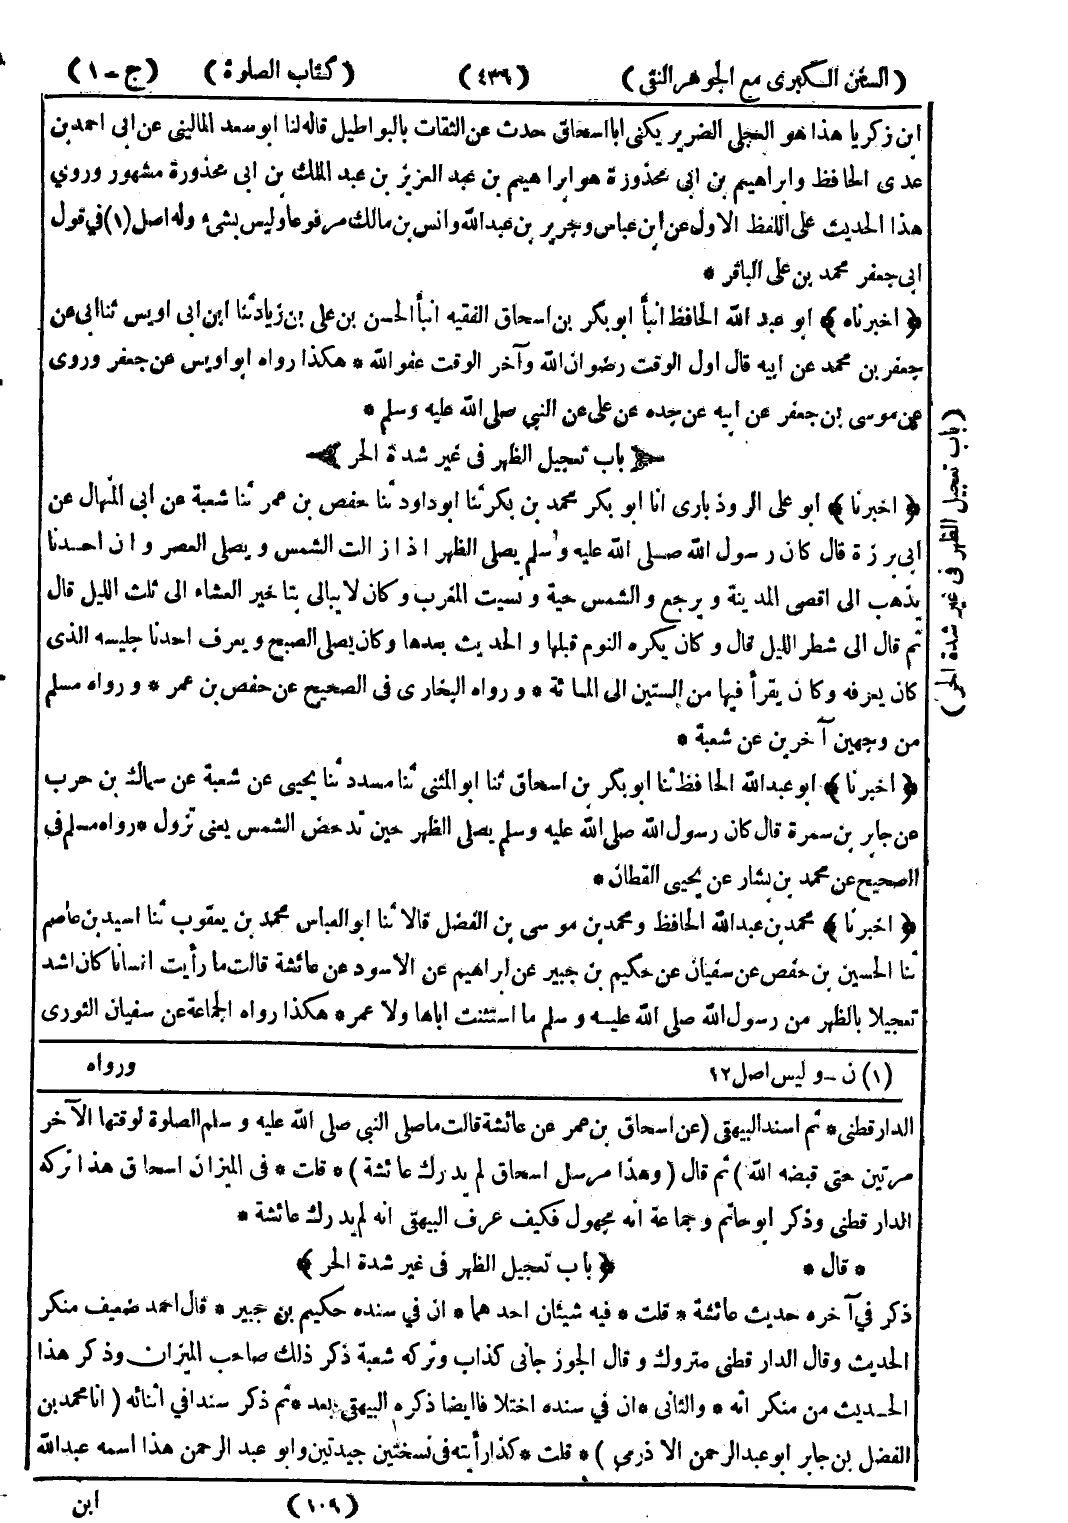 (السنن الكبرى مع الجوهر النقى) (٤٣٦) (كتاب الصلوة) (ج-١)
ابن زكريا هذا هو العجلى الضرير يكنى ابا اسحاق حدث عن الثقات بالبواطيل قاله لنا ابو سعد المالينى عن ابى احمد بن
عدى الحافظ وابراهيم بن ابى محذوزة هو ابراهيم بن عبد العزيز بن عبد الملك بن ابى محذورة مشهور وروي
هذا الحديث على اللفظ الاول عن ابن عباس وجرير بن عبد الله وانس بن مالك مرفوعا وليس بشئ وله اصل (١) في قول
ابى جعفر محمد بن على الباقر *
﴿ اخبرناه ﴾ ابو عبد الله الحافظ انبأ ابو بكر بن اسحاق الفقيه انبأ الحسن بن على بن زياد ثنا ابن ابى اويس ثنا ابى عن
جعفر بن محمد عن ابيه قال اول الوقت رضوان الله وآخر الوقت عفو الله * هكذا رواه ابو اويس عن جعفر وروى
عن موسى بن جعفر عن ابيه عن جده عن على عن النبي صلى الله عليه وسلم *
باب تعجيل الظهر فى غير شدة الحر
﴿ اخبرنا ﴾ ابو على الروذبارى انا ابو بكر محمد بن بكر ثنا ابو داود ثنا حفص بن عمر ثنا شعبة عن ابى المنهال عن
ابى برزة قال كان رسول الله صلى الله عليه وسلم يصلى الظهر اذا زالت الشمس ويصلى العصر وان احدنا
يذهب الى اقصى المدينة ويرجع والشمس حية ونسيت المغرب وكان لا يبالى بتاخير العشاء الى ثلث الليل قال
ثم قال الى شطر الليل قال وكان يكره النوم قبلها والحديث بعدها وكان يصلى الصبح ويعرف احدنا جليسه الذى
كان يعرفه وكان يقرأ فيها من الستين الى المائة * ورواه البخارى فى الصحيح عن حفص بن عمر * ورواه مسلم
من وجهين آخرين عن شعبة *
﴿ اخبرنا ﴾ ابو عبد الله الحافظ ثنا ابو بكر بن اسحاق ثنا ابو المثنى ثنا مسدد ثنا يحيى عن شعبة عن سماك بن حرب
عن جابر بن سمرة قال كان رسول الله صلى الله عليه وسلم يصلى الظهر حين تدحض الشمس يعنى تزول * رواه مسلم فى
الصحيح عن محمد بن بشار عن يحيى القطان *
﴿ اخبرنا ﴾ محمد بن عبد الله الحافظ ومحمد بن موسى بن الفضل قالا ثنا ابو العباس محمد بن يعقوب ثنا اسيد بن عاصم
ثنا الحسين بن حفص عن سفيان عن حكيم بن جبير عن ابراهيم عن الاسود عن عائشة قالت ما رأيت انسانا كان اشد
تعجيلا بالظهر من رسول الله صلى الله عليه وسلم ما استثنت اباها ولا عمر * هكذا رواه الجماعة عن سفيان الثورى
(باب تعجيل الظهر فى غير شدة الحر)
(١) ن - وليس اصل ١٢
ورواه
الدار قطنى * ثم اسند البيهقى (عن اسحاق بن عمر عن عائشة قالت ما صلى النبي صلى الله عليه وسلم الصلوة لوقتها الآخر
مرتين حتى قبضه الله) ثم قال (وهذا مرسل اسحاق لم يدرك عائشة) * قلت * فى الميزان اسحاق هذا تركه
الدار قطنى وذكر ابو حاتم وجماعة انه مجهول فكيف عرف البيهقى انه لم يدرك عائشة *
* قال * ﴿ باب تعجيل الظهر فى غير شدة الحر ﴾
ذكر في آخره حديث عائشة * قلت * فيه شيئان احدهما * ان في سنده حكيم بن جبير * قال احمد ضعيف منكر
الحديث وقال الدار قطنى متروك وقال الجوزجانى كذاب وتركه شعبة ذكر ذلك صاحب الميزان وذكر هذا
الحديث من منكراته * والثانى * ان في سنده اختلافا ايضا ذكره البيهقى بعد * ثم ذكر سندا في اثنائه (انا محمد بن
الفضل بن جابر ابو عبد الرحمن الاذرمى) * قلت * كذا رأيته فى نسختين جيدتين وابو عبد الرحمن هذا اسمه عبد الله
(١٠٩) ابن